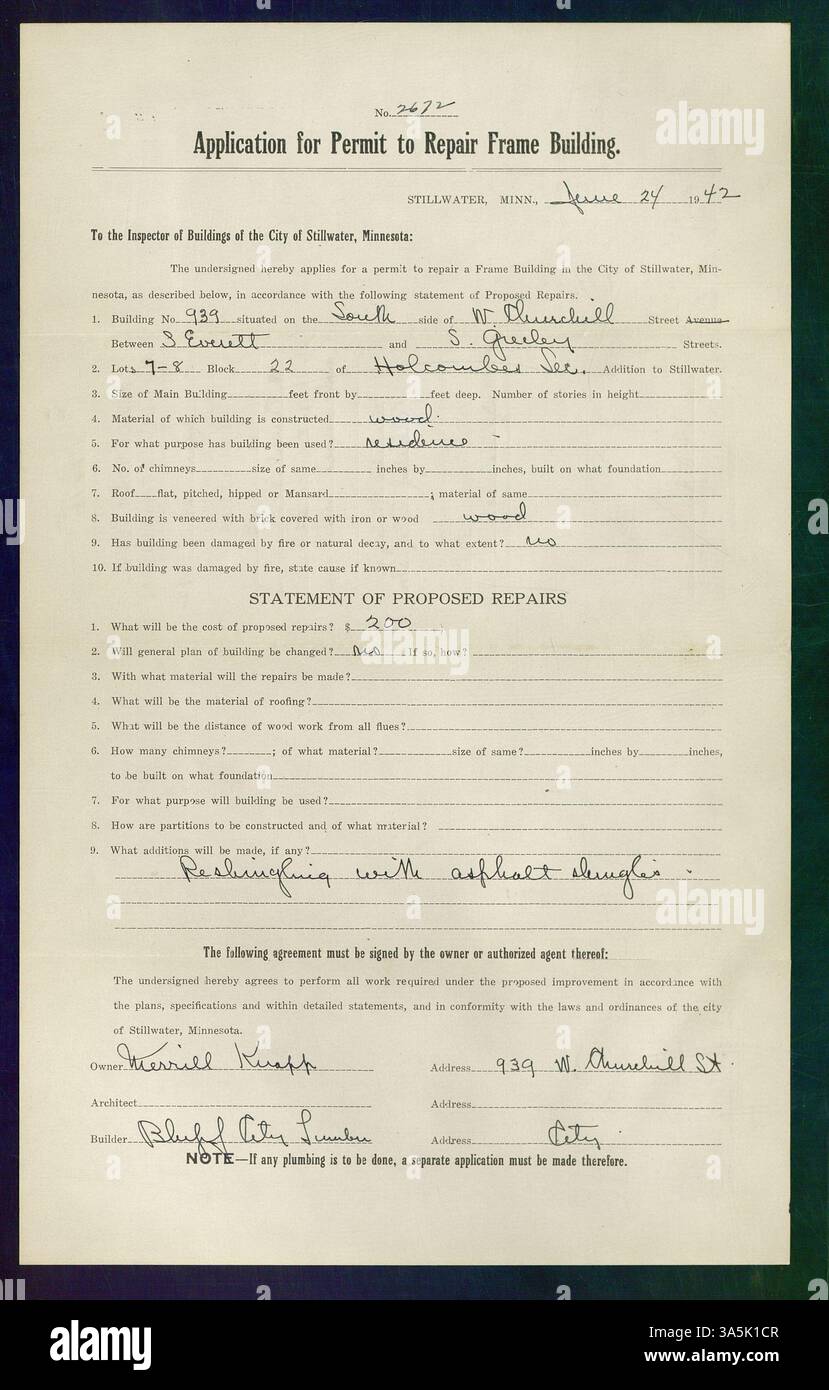 No. 2672
Application for Permit to Repair Frame Building.
STILLWATER, MINN., June 24 1942
To the Inspector of Buildings of the City of Stillwater, Minnesota:
The undersigned hereby applies for a permit to repair a Frame Building in the City of Stillwater, Min-
nesota, as described below, in accordance with the following statement of Proposed Repairs.
1. Building No 939 situated on the South side of W. Churchill Street Avenue
Between S Everett and S. Greeley Streets.
2. Lots 7-8 Block 22 of Holcombes Sec. Addition to Stillwater.
3. Size of Main Building feet front by feet deep. Number of stories in height
4. Material of which building is constructed wood
5. For what purpose has building been used? residence
6. No. of chimneys size of same inches by inches, built on what foundation
7. Roof flat, pitched, hipped or Mansard ; material of same
8. Building is veneered with brick covered with iron or wood wood
9. Has building been damaged by fire or natural decay, and to what extent? no
10. If building was damaged by fire, state cause if known
STATEMENT OF PROPOSED REPAIRS
1. What will be the cost of proposed repairs? $ 200
2. Will general plan of building be changed? no If so, how?
3. With what material will the repairs be made?
4. What will be the material of roofing?
5. What will be the distance of wood work from all flues?
6. How many chimneys? ; of what material? size of same? inches by inches,
to be built on what foundation
7. For what purpose will building be used?
8. How are partitions to be constructed and of what material?
9. What additions will be made, if any?
Reshingling with asphalt shingles
The following agreement must be signed by the owner or authorized agent thereof:
The undersigned hereby agrees to perform all work required under the proposed improvement in accordance with
the plans, specifications and within detailed statements, and in conformity with the laws and ordinances of the city
of Stillwater, Minnesota.
Owner Merrill Knapp Address 939 W. Churchill St
Architect Address
Builder Bluff City Lumber Address City
NOTE—If any plumbing is to be done, a separate application must be made therefore.
alamy
Image ID: 3A5K1CR
www.alamy.com